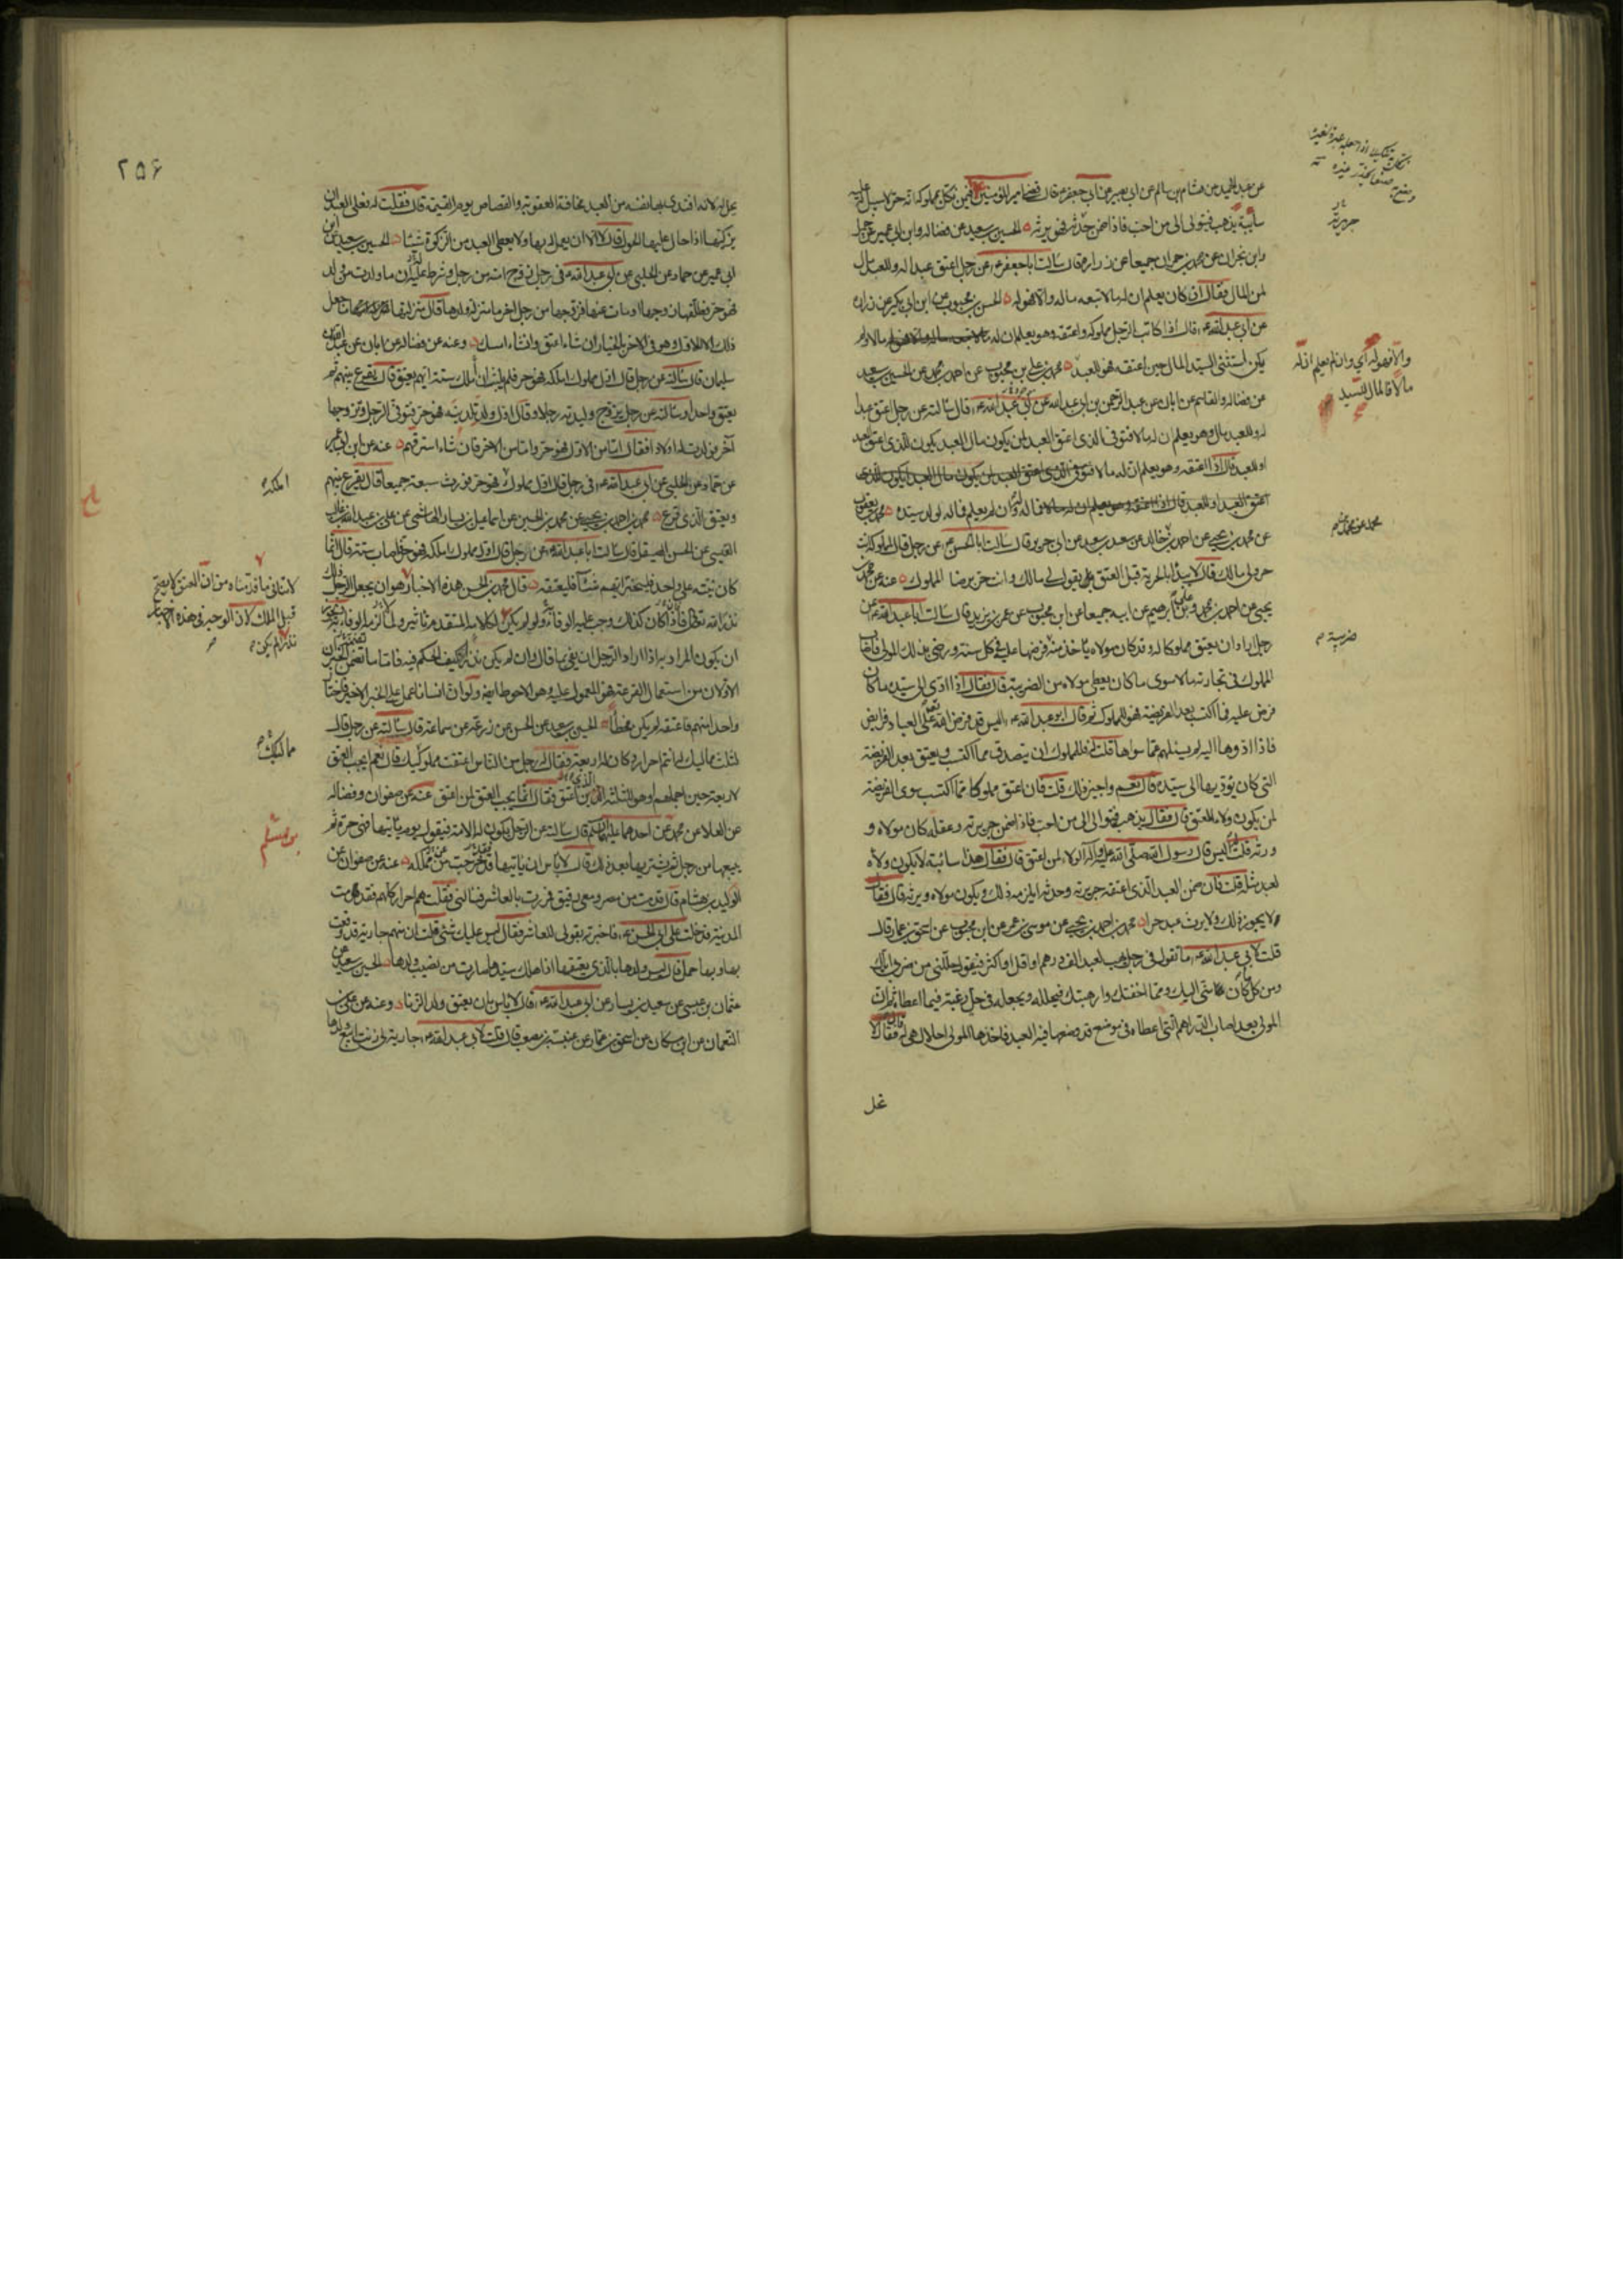 عن عبد الحميد عن هشام بن سالم عن ابي بصير عن ابي جعفر ع قال قضى امير المؤمنين ع فيمن نكل بمملوكه انه حر لا سبيل له عليه
سايبة يذهب فيتولى الى من احب فاذا ضمن حدثه فهو يرثه الحسين بن سعيد عن فضالة وابن ابي عمير عن جميل
وابن ابي نجران عن محمد بن حمران جميعا عن زرارة قال سالت ابا جعفر ع عن رجل اعتق عبدا له وللعبد مال
لمن المال فقال ان كان يعلم ان له مالا تبعه ماله والا فهو له الحسن بن محبوب عن ابن بكير عن زرارة
عن ابي عبد الله ع قال اذا كاتب الرجل مملوكه واعتقه وهو يعلم ان له مالا ولم
يكن استثنى السيد المال حين اعتقه فهو للعبد محمد بن علي بن محبوب عن احمد بن محمد عن الحسين بن سعيد
عن فضالة والقاسم عن ابان عن عبد الرحمن بن ابي عبد الله عن ابي عبد الله ع قال سالته عن رجل اعتق عبدا
له وللعبد مال وهو يعلم ان له مالا فتوفى الذي اعتق العبد لمن يكون مال العبد يكون للذي اعتق العبد
او للعبد قال اذا اعتقه وهو يعلم ان له مالا
فماله له وان لم يعلم فماله لولد سيده محمد بن يعقوب
عن محمد بن يحيى عن احمد بن خالد عن سعد بن سعد عن ابي جرير قال سالت ابا الحسن ع عن رجل قال لمملوكه انت
حر ولي مالك قال لا يبدا بالحرية قبل العتق يقول لي مالك وانت حر برضا المملوك عنه عن محمد بن
يحيى عن احمد بن محمد وعلي بن ابرهيم عن ابيه جميعا عن ابن محبوب عن عمر بن يزيد قال سالت ابا عبد الله ع عن
رجل اراد ان يعتق مملوكا له وقد كان مولاه ياخذ منه ضريبة فرضها عليه في كل سنة ورضي بذلك المولى فاصاب
المملوك في تجارته مالا سوى ما كان يعطي مولاه من الضريبة قال فقال اذا ادى الى سيده ما كان
فرض عليه فما اكتسب بعد الفريضة فهو للمملوك ثم قال ابو عبد الله ع اليس قد فرض الله على العباد فرايض
فاذا ادوها اليه لم يسئلهم عما سواها قلت له فللمملوك ان يتصدق مما اكتسب ويعتق بعد الفريضة
التي كان يؤديها الى سيده قال نعم واجيز ذلك له قلت فان اعتق مملوكا مما اكتسب سوى الفريضة
لمن يكون ولاء المعتق قال فقال يذهب فيتوالى الى من احب فاذا ضمن جريرته وعقله كان مولاه و
ورثه قلت له اليس قال رسول الله صلى الله عليه وآله الولاء لمن اعتق قال فقال هذا سائبة لا يكون ولاؤه
لعبد مثله قلت فان ضمن العبد الذي اعتقه جريرته وحدثه ايلزمه ذلك ويكون مولاه ويرثه قال فقال
لا يجوز ذلك ولا يرث عبد حرا محمد بن احمد بن يحيى عن موسى بن عمر عن ابن محبوب عن اسحق بن عمار قال
قلت لابي عبد الله ع ما تقول في رجل يهب لعبد الف درهم او اقل او اكثر فيقول حللني من ضربي اياك
ومن كل ما كان مني اليك ومما اخفتك وارهبتك فيحلله ويجعله في حل رغبة فيما اعطاه ثم ان
المولى بعد اصاب الدراهم التي اعطاه في موضع قد وضعها فيه العبد فاخذها المولى احلال هي له فقال لا
والا فهو له اي وان لم يعلم ان له
مالا فالمال للسيد
ضريبة
٢٥۶
يحل له لانه افتدى بها نفسه من العبد مخافة العقوبة والقصاص يوم القيمة قال فقلت له فعلى العبد ان
يزكيها اذا حال عليها الحول قال لا الا ان يعمل له بها ولا يعطى العبد من الزكوة شيئا الحسين بن سعيد عن ابن
ابي عمير عن حماد عن الحلبي عن ابي عبد الله ع في رجل زوج امته من رجل وشرط عليه ان ما ولدت من ولد
فهو حر فطلقها زوجها او مات عنها فزوجها من رجل اخر ما منزلة ولدها قال منزلتها ما جعل
ذلك الا للاول وهو في الاخر بالخيار ان شاء اعتق وان شاء امسك وعنه عن فضالة عن ابان عن عبد الله بن
سليمان قال سالته عن رجل قال اول مملوك املكه فهو حر فلم يلبث ان ملك ستة ايهم يعتق قال يقرع بينهم ثم
يعتق واحدا وسالته عن رجل يزوج وليدته رجلا وقال اول ولد تلدينه فهو حر فتوفى الرجل وتزوجها
آخر فولدت له اولادا فقال اما من الاول فهو حر واما من الاخر فان شاء استرقهم عنه عن ابن ابي عمير
عن حماد عن الحلبي عن ابي عبد الله ع في رجل قال اول مملوك املكه فهو حر فورث سبعة جميعا قال يقرع بينهم
ويعتق الذي قرع محمد بن احمد بن يحيى عن محمد بن الحسين عن اسماعيل بن يسار الهاشمي عن علي بن عبد الله بن غالب
القيسي عن الحسن الصيقل قال سالت ابا عبد الله ع عن رجل قال اول مملوك املكه فهو حر فاصاب ستة قال انما
كان نيته على واحد فليختر ايهم شاء فليعتقه قال محمد بن الحسن هذه الاخبار وهو ان يجعل الرجل ذلك
نذرا لله تعالى فاذا كان كذلك وجب عليه الوفاء به ولو لم يكن لكلامه المتقدم تاثير ولما لزمه الوفاء به ويجوز
ان يكون المراد به اذا اراد الرجل ان يفي بما قال وان لم يكن نذرا كيف الحكم فيه فاما ما تضمن الخبران
الاولان من استعمال القرعة فهو المعمول عليه وهو الاحوط ايضا ولو ان انسانا عمل على الخبر الاخير فاختار
واحدا منهم فاعتقه لم يكن مخطئا الحسين بن سعيد عن الحسن عن زرعة عن سماعة قال سالته عن رجل قال
لثلثة مماليك له انتم احرار وكان له اربعة فقال له رجل من الناس اعتقت مماليكك قال نعم ايجب العتق
لاربعة حين اجملهم او هو للثلثة الذين اعتق فقال انما يجب العتق لمن اعتق عنه عن صفوان وفضالة
عن العلا عن محمد عن احدهما عليهما السلم قال سالته عن الرجل يكون له الامة فيقول يوم ياتيها فهي حرة ثم
يبيعها من رجل ثم يشتريها بعد ذلك قال لا باس ان ياتيها قد خرجت من ملكه عنه عن صفوان عن
الوليد بن هشام قال قدمت من مصر ومعي رقيق فمررت بالعاشر فسالني فقلت هم احرار كلهم فقدمت
المدينة فدخلت على ابي الحسن ع فاخبرته بقولي للعاشر فقال ليس عليك شيء قلت ان فيهم جارية قد وقعت
بها وبها حمل قال اليس ولدها بالذي يعتقها اذا هلك سيدها صارت من نصيب ولدها الحسين بن سعيد عن
عثمان بن عيسى عن سعيد بن يسار عن ابي عبد الله ع قال لا باس بان يعتق ولد الزنا وعنه عن علي بن
النعمان عن ابن مسكان عن اسحق بن عمار عن عنبسة بن مصعب قال قلت لابي عبد الله ع جارية لي زنت ابيع ولدها
املكه
لا ينافي ما قدمناه من ان العتق لا يصح
قبل الملك لان الوجه في هذه الاخبار
مماليكك